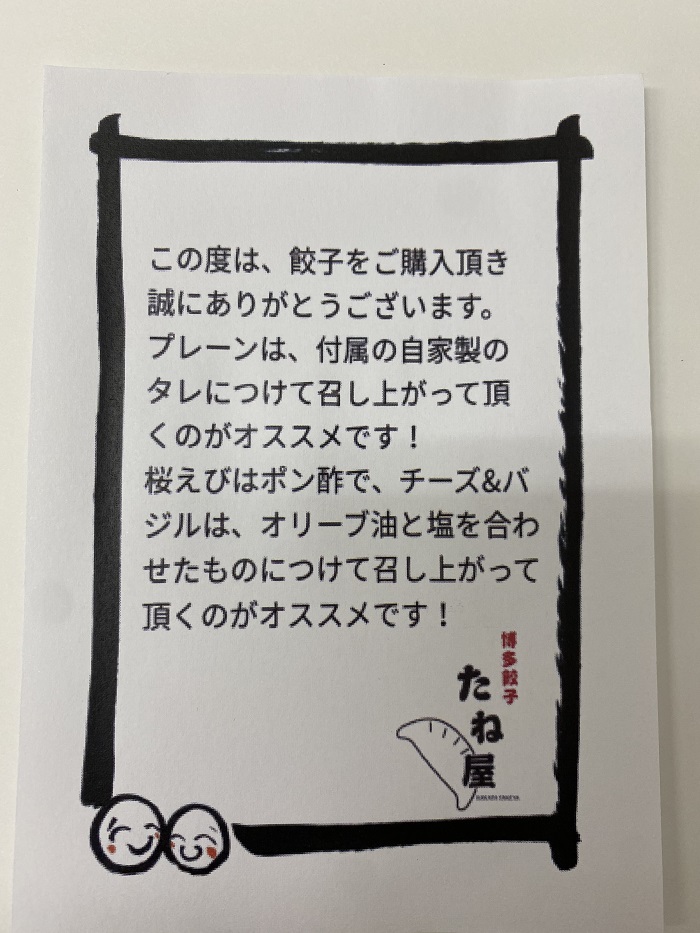 この度は、餃子をご購入頂き
誠にありがとうございます。
プレーンは、付属の自家製の
タレにつけて召し上がって頂
くのがオススメです！
桜えびはポン酢で、チーズ&バ
ジルは、オリーブ油と塩を合わ
せたものにつけて召し上がって
頂くのがオススメです！
博多餃子
たね屋